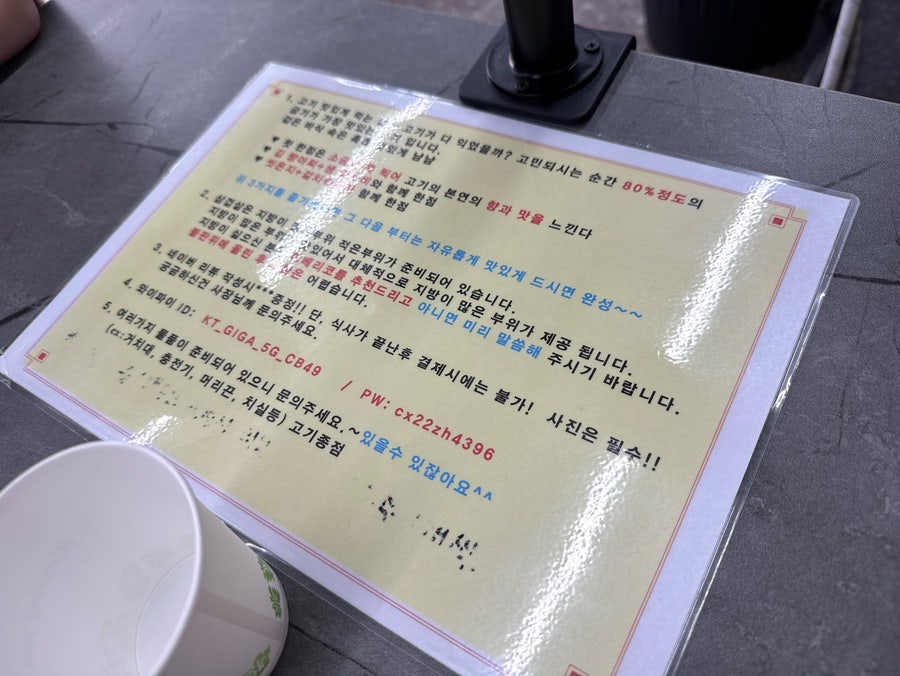 1. 고기 맛있게 먹는 고기가 다 익었을까? 고민되시는 순간 80%정도의
굽기가 가장 맛있는 것 입니다.
겉은 바삭 속은 있게 냠냠
♥ 첫 한점은 소금 찍어 고기의 본연의 향과 맛을 느낀다
♥ 와 함께 한점
♥ 함께 한점
위 3가지를 즐기 그 다음 부터는 자유롭게 맛있게 드시면 완성~~
2. 삼겹살은 지방이 부위 적은부위가 준비되어 있습니다.
지방이 많은 부위 맛있어서 대체적으로 지방이 많은 부위가 제공 됩니다.
지방이 싫으신 를 추천드리고 아니면 미리 말씀해 주시기 바랍니다.
불판위에 올린 후 은 어렵습니다.
3. 네이버 리뷰 참점시***증정!! 단, 식사가 끝난후 결제시에는 불가! 사진은 필수!!
궁금하신건 사장님께 문의주세요.
4. 와이파이 ID: KT_GIGA_5G_CB49 / PW: cx22zh4396
5. 여러가지 물품이 준비되어 있으니 문의주세요.~있을수 있잖아요^^
(ex:거치대, 충전기, 머리끈, 치실등) 고기종점